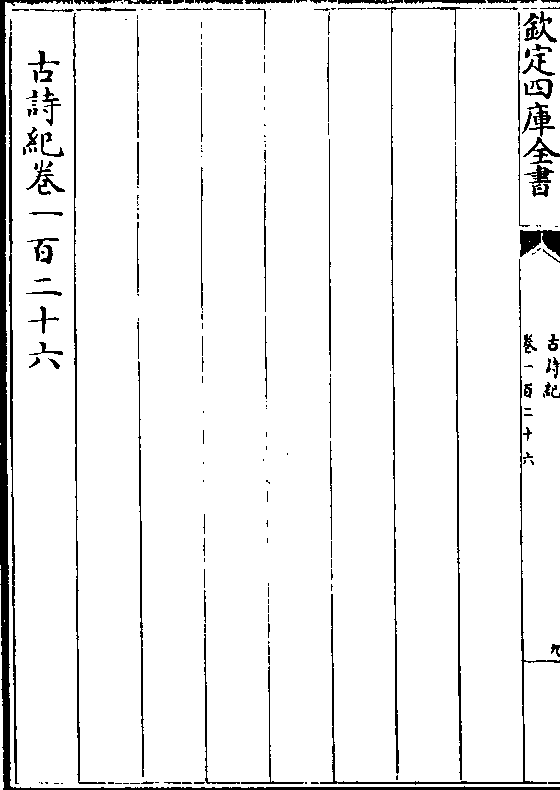 欽定四庫全書
古詩紀
卷一百二十六
九
古詩紀卷一百二十六